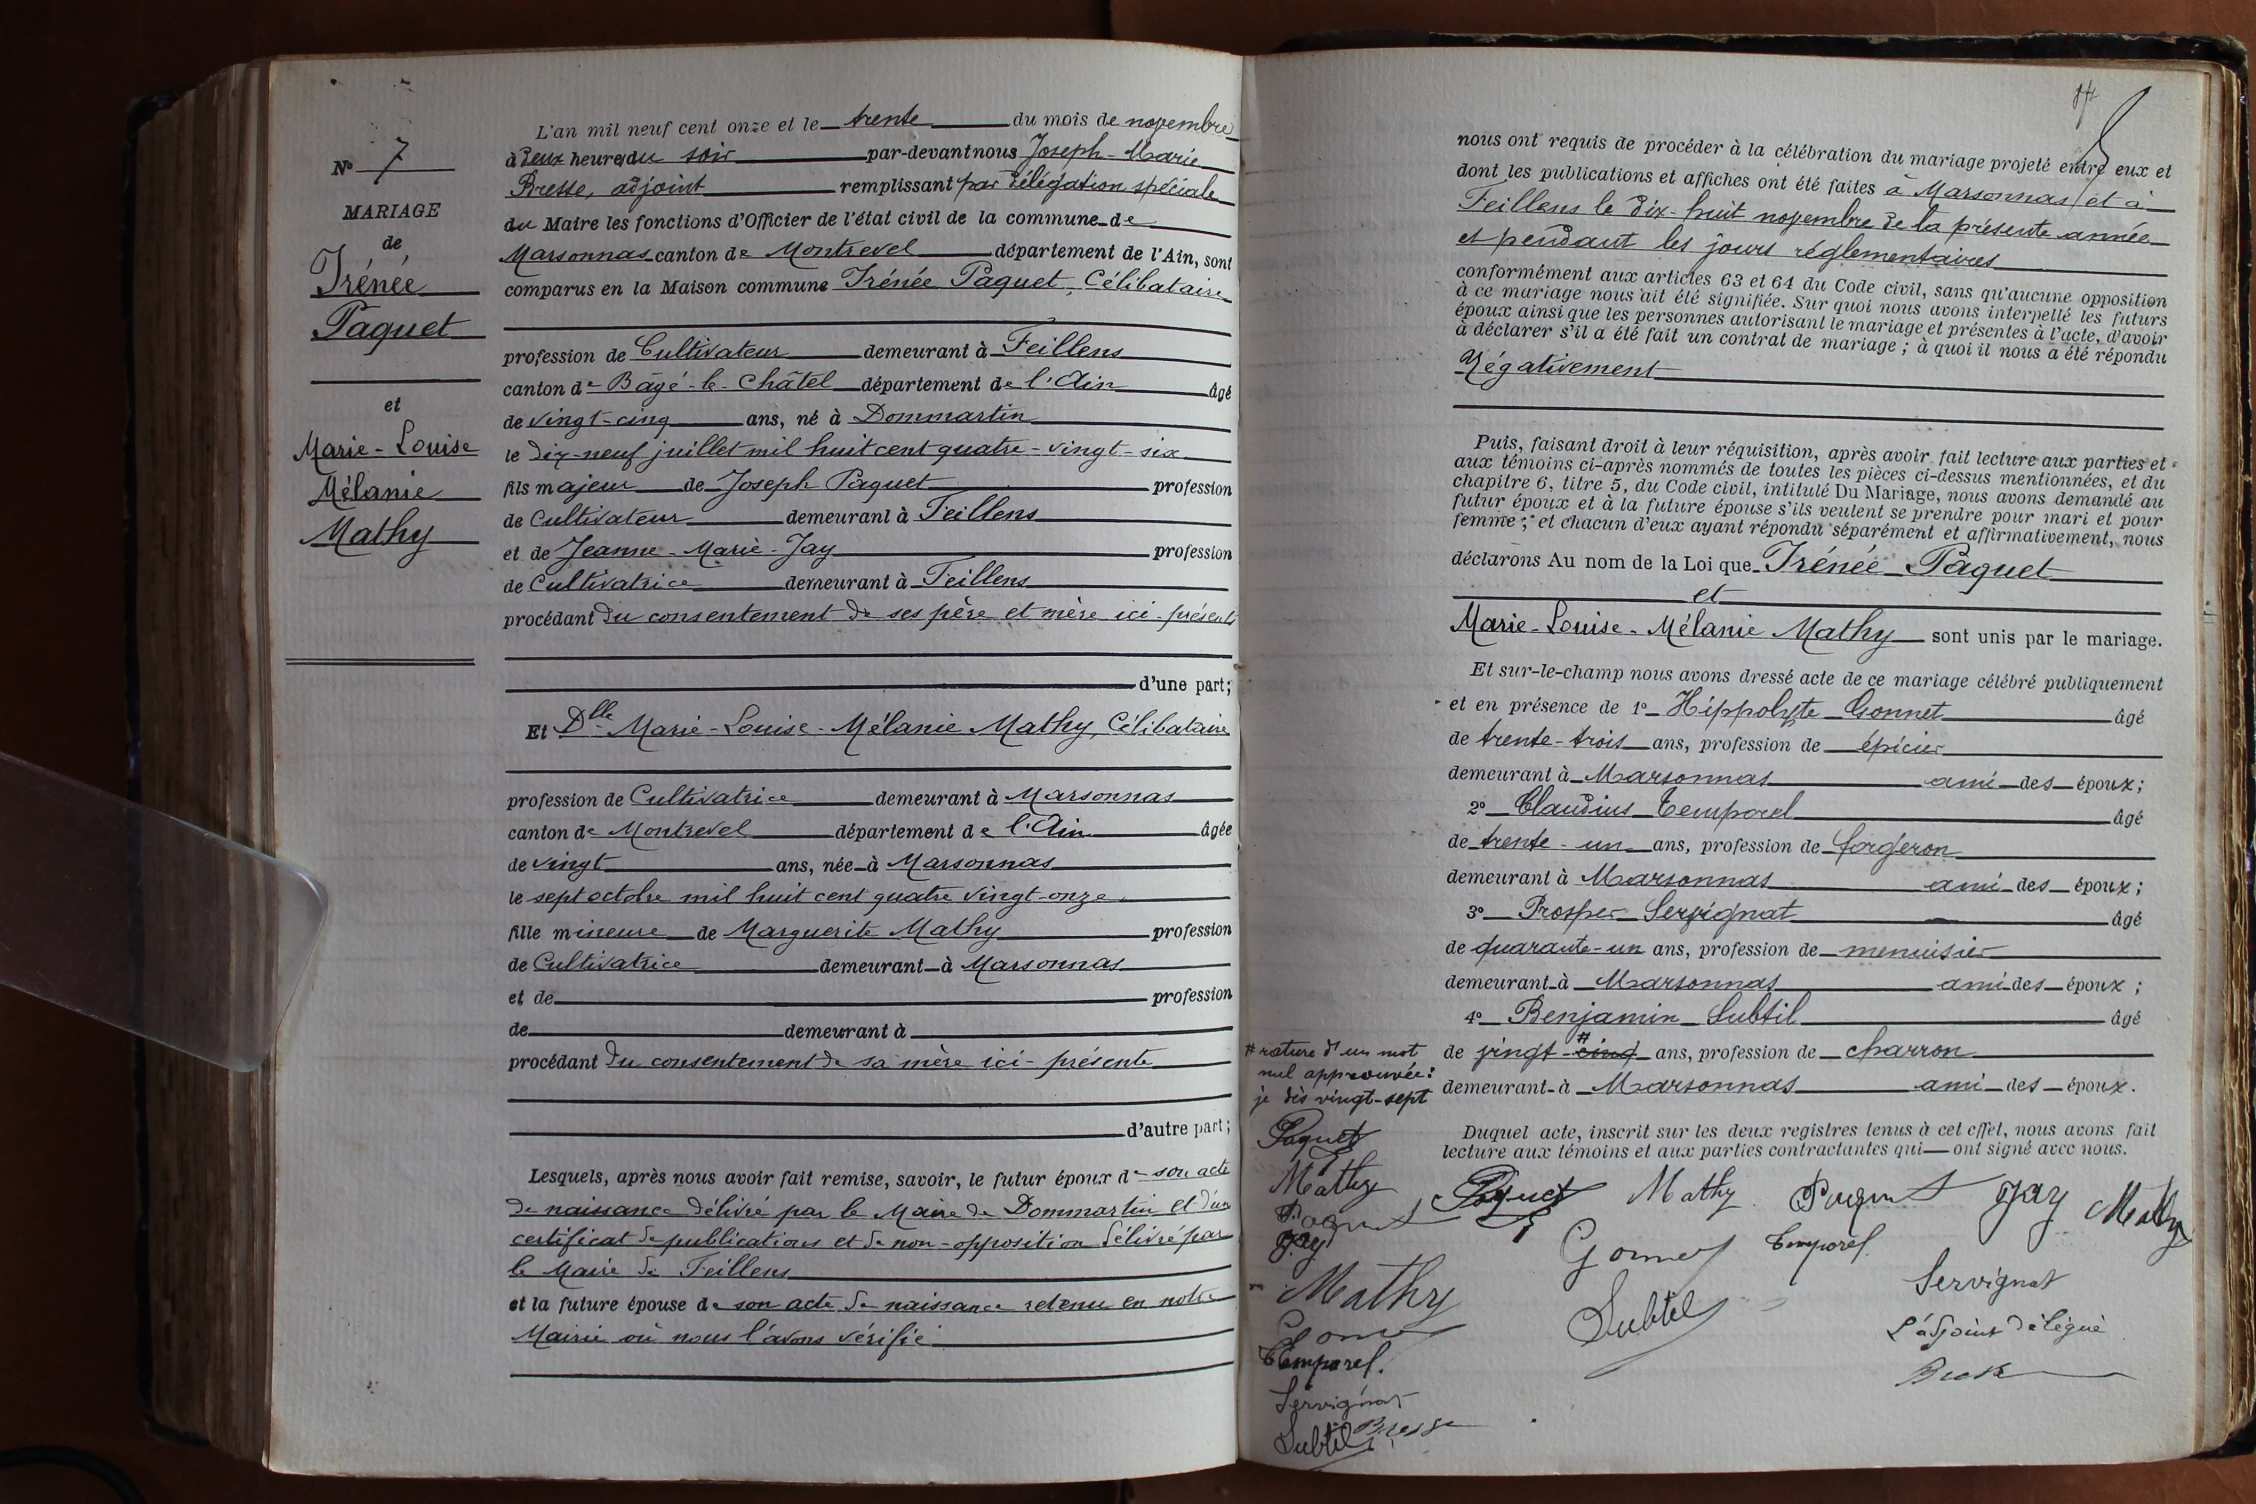 N° 7
MARIAGE
de
Irénée
Paquet
et
Marie-Louise
Mélanie
Mathy
L'an mil neuf cent onze et le trente du mois de novembre
à deux heures du soir par-devant nous Joseph-Marie
Bresse, adjoint remplissant par délégation spéciale
du Maire les fonctions d'Officier de l'état civil de la commune de
Marsonnas canton de Montrevel département de l'Ain, sont
comparus en la Maison commune Irénée Paquet, Célibataire
profession de Cultivateur demeurant à Feillens
canton de Bâgé-le-Châtel département de l'Ain âgé
de vingt-cinq ans, né à Dommartin
le dix-neuf juillet mil huit cent quatre-vingt-six
fils majeur de Joseph Paquet profession
de Cultivateur demeurant à Feillens
et de Jeanne-Marie Jay profession
de Cultivatrice demeurant à Feillens
procédant du consentement de ses père et mère ici-présents
d'une part;
Et Dlle Marie-Louise-Mélanie Mathy, Célibataire
profession de Cultivatrice demeurant à Marsonnas
canton de Montrevel département de l'Ain âgée
de vingt ans, née à Marsonnas
le sept octobre mil huit cent quatre vingt-onze
fille mineure de Marguerite Mathy profession
de Cultivatrice demeurant à Marsonnas
et de profession
de demeurant à
procédant du consentement de sa mère ici-présente
d'autre part;
Lesquels, après nous avoir fait remise, savoir, le futur époux de son acte
de naissance délivré par le Maire de Dommartin et d'un
certificat de publications et de non-opposition délivré par
le Maire de Feillens
et la future épouse de son acte de naissance retenu en notre
Mairie où nous l'avons vérifié
nous ont requis de procéder à la célébration du mariage projeté entre eux et
dont les publications et affiches ont été faites à Marsonnas et à
Feillens le dix-huit novembre de la présente année
et pendant les jours réglementaires
conformément aux articles 63 et 64 du Code civil, sans qu'aucune opposition
à ce mariage nous ait été signifiée. Sur quoi nous avons interpellé les futurs
époux ainsi que les personnes autorisant le mariage et présentes à l'acte, d'avoir
à déclarer s'il a été fait un contrat de mariage; à quoi il nous a été répondu
Négativement
Puis, faisant droit à leur réquisition, après avoir fait lecture aux parties et
aux témoins ci-après nommés de toutes les pièces ci-dessus mentionnées, et du
chapitre 6, titre 5, du Code civil, intitulé Du Mariage, nous avons demandé au
futur époux et à la future épouse s'ils veulent se prendre pour mari et pour
femme; et chacun d'eux ayant répondu séparément et affirmativement, nous
déclarons Au nom de la Loi que Irénée Paquet
et
Marie-Louise-Mélanie Mathy sont unis par le mariage.
Et sur-le-champ nous avons dressé acte de ce mariage célébré publiquement
et en présence de 1° Hippolyte Gonnet âgé
de trente-trois ans, profession de épicier
demeurant à Marsonnas ami des époux;
2° Claudius Temporel âgé
de trente-un ans, profession de forgeron
demeurant à Marsonnas ami des époux;
3° Prosper Servignat âgé
de quarante-un ans, profession de menuisier
demeurant à Marsonnas ami des époux;
4° Benjamin Subtil âgé
de vingt-cinq # ans, profession de charron
demeurant à Marsonnas ami des époux.
# rature d'un mot
nul approuvée:
je dis vingt-sept
Duquel acte, inscrit sur les deux registres tenus à cet effet, nous avons fait
lecture aux témoins et aux parties contractantes qui ont signé avec nous.
Paquet Mathy Paquet Jay Mathy
Gonnet Temporel
Subtil Servignat
L'adjoint délégué
Bresse
Paquet
Mathy
Paquet
Jay
Mathy
Gonnet
Temporel.
Servignat
Subtil Bresse